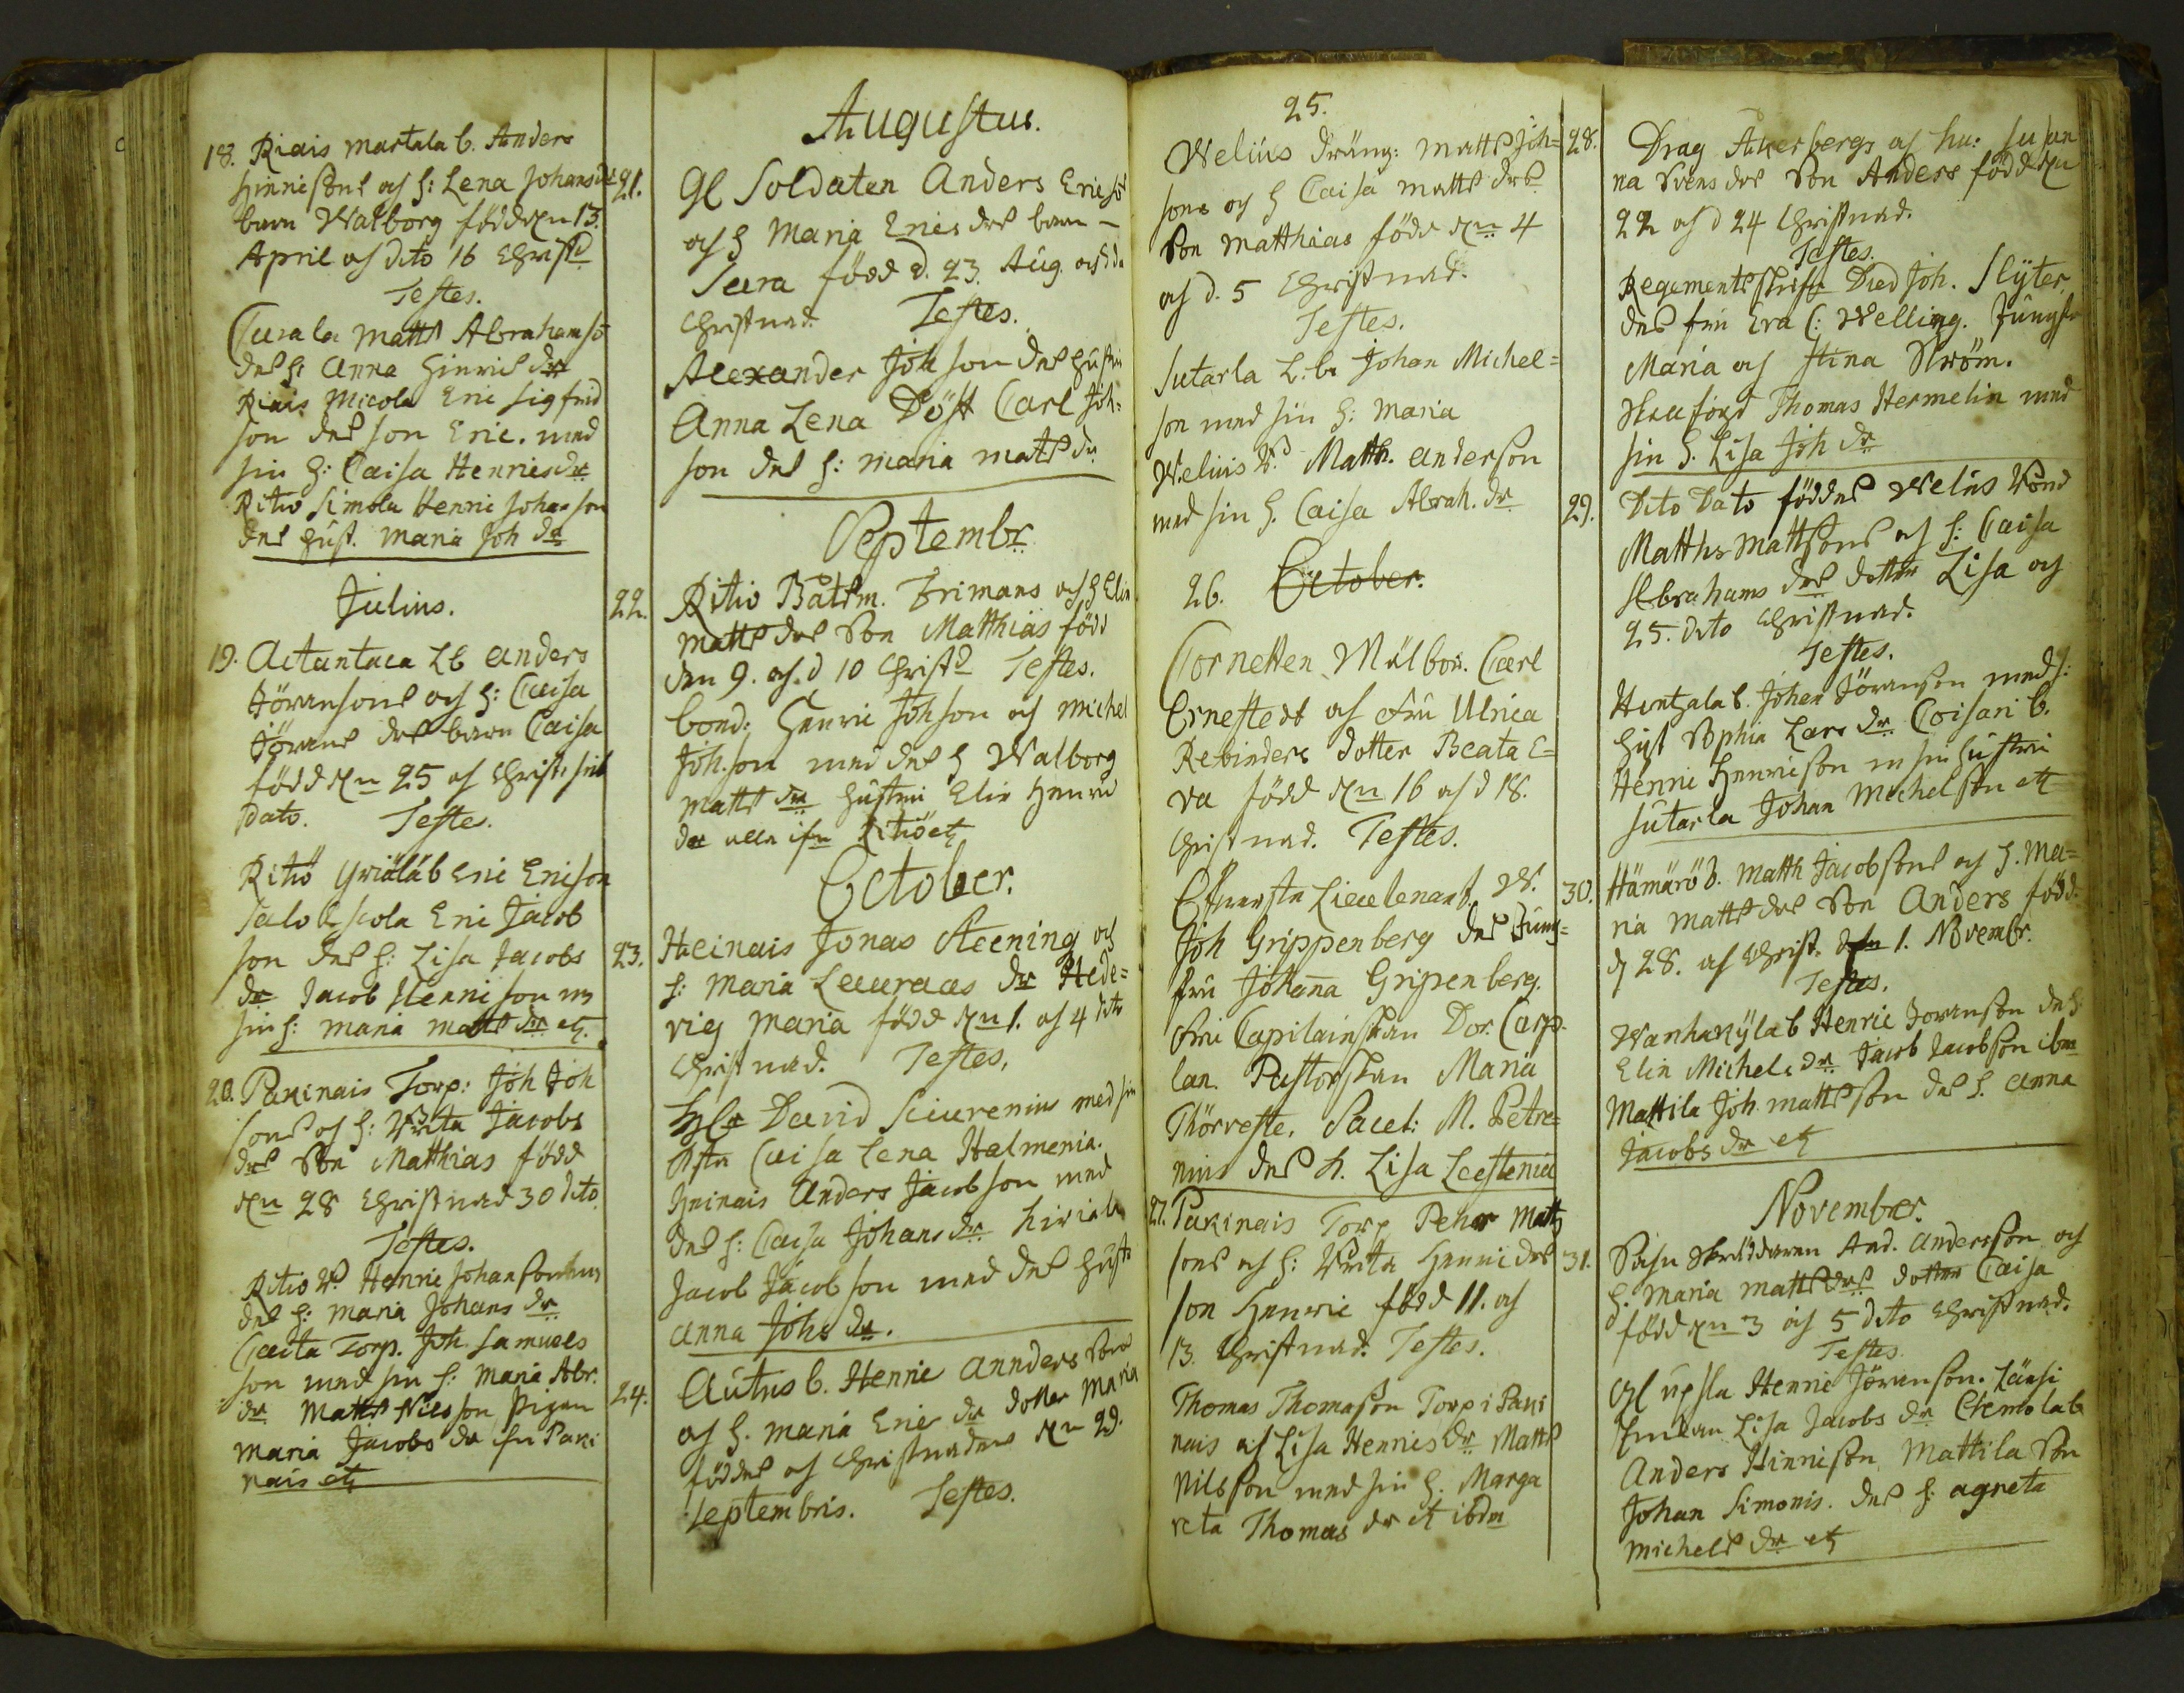 18. Riais Martala b. Anders
Hinrisons och h: Lena Johans dr
barn Walborg född den 13.
April och dito 16 Christd
Testes.
Curala Matts Abrahamso
des h: Anna Hinrics dr
Riais Micola Eric Sigfrid
son des son Eric. med
sin h: Caisa Henrics dr
Ritio Simola Henric Johanson
des hust. Maria Joh dr
Julius.
19. Lb Anders
Jöransons och h: Caisa
Jörans drs barn Caisa
född den 25 och Christ.
Dato. Teste.
Ritio b Eric Ericson
Eric Jacob
son des h: Lisa Jacobs
dr Jacob Henrison m
sin h: Maria Matts dr etc.
20. Pakinais Torp: Joh Joh
sons och h: Brita Jacobs
drs Son Matthias född
den 28 Christnad 30 dito
Testes.
Ritio Henric Johanson
des h: Maria Johans dr
Torp. Joh. Samuels
son med sin h: Maria Abr.
dr Matts Nilsson Pigan
Maria Jacobs dr ifn Paki
nais etc
Augustus.
21. Gl Soldaten Anders Ericso
och h Maria Erics drs barn
Sara född d. 23. Aug. och
Christnad. Testes.
Alexander Johson des hustru
Anna Lena Döst Carl Joh=
son des h: Maria Matts dr
Septembr
22. Ritio Båtsm. Frimans och h Elin
Matts drs Son Matthias född
den 9. och d 10 Christd Testes.
bond: Henric Johson och Michel
Johson med des h Walborg
Matts dr hustru Elin Henric
dr alla ifn Ritiö etc
October.
23. Heinais Jonas och
h: Maria Lauraeus dr Hede=
vig Maria född den 1. och 4 dito
Christnad. Testes.
David Sciurenius med sin
Caisa Lena Halmenia.
Heinais Anders Jacobson med
des h: Caisa Johans dr
Jacob Jacobson med des hust
Anna Johs dr.
24. Autus b. Henric Annders Sons
och h. Maria Erics dr dotter Maria
föddes och Christnades den 29.
Septembris. Testes.
25.
Welius dräng: Matts Joh=
sons och h Caisa Matts drs
Son Matthias född den 4
och d. 5 Christnad.
Testes.
Sutarla L.b. Johan Michel=
son med sin h: Maria
Welius Matth. Anderson
med sin h. Caisa Abrah. dr
26. October.
Cornetten Carl
Ernestedt och Fru Ulrica
Rebinders dotter Beata E=
va född den 16 och d 18.
Christnad. Testes.
Lieutenant W.
Joh Grippenberg des Jung=
fru Johanna Gripenberg.
Fru Capitainskan Dor. Carp=
lan. Pastorskan Maria
Thörveste. Sacel: M. Petre=
nius des h. Lisa Lestenia
27. Pakinais Torp Peher Matts
sons och h: Brita Henric drs
son Henric född 11. och
13. Christnad. Testes.
Thomas Thomason Torp i Paki
nais och Lisa Henrics dr Matts
Nilsson med sin h. Marga
reta Thomas dr etc ibdm
28. Drag Åkerbergs och hu: Susan
na Svens drs Son Anders född den
22 och d 24 Christnad.
Testes.
Regementsskrifv Died Joh. Slÿter
des fru Eva C: Welling. Jungfr
Maria och Stina Ström.
Thomas Hermelin med
sin h. Lisa Joh dr
29. Dito Dato föddes Welius bond
Matths Mattsons och h: Caisa
Abrahams drs dotter Lisa och
25. dito Christnad.
Testes.
Hontzala b. Johan Jöranson med s:
Sophia Lars dr Coisari b.
Henric Henricson m sin hustru
Sutarla Johan Michelson etc
30. Hämärö b. Matth Jacobsons och h. Ma=
ria Matts drs Son Anders född
d 28. och Christ. den 1. Novembr.
Testes.
Wanhakÿla b Henric Joranson des h:
Elin Michels dr Jacob Jacobson ibm
Mattila Joh. Mattsson des h. Anna
Jacobs dr etc
November.
31. Skräddaren And. Andersson och
h. Maria Matts drs dotter Caisa
född den 3 och 5 dito Christnad.
Testes.
Gl upsla Henric Jöranson. Länsi
Lisa Jacobs dr b
Anders Hinrison, Mattila Son
Johan Simonis. des h: Agneta
Michels dr etc